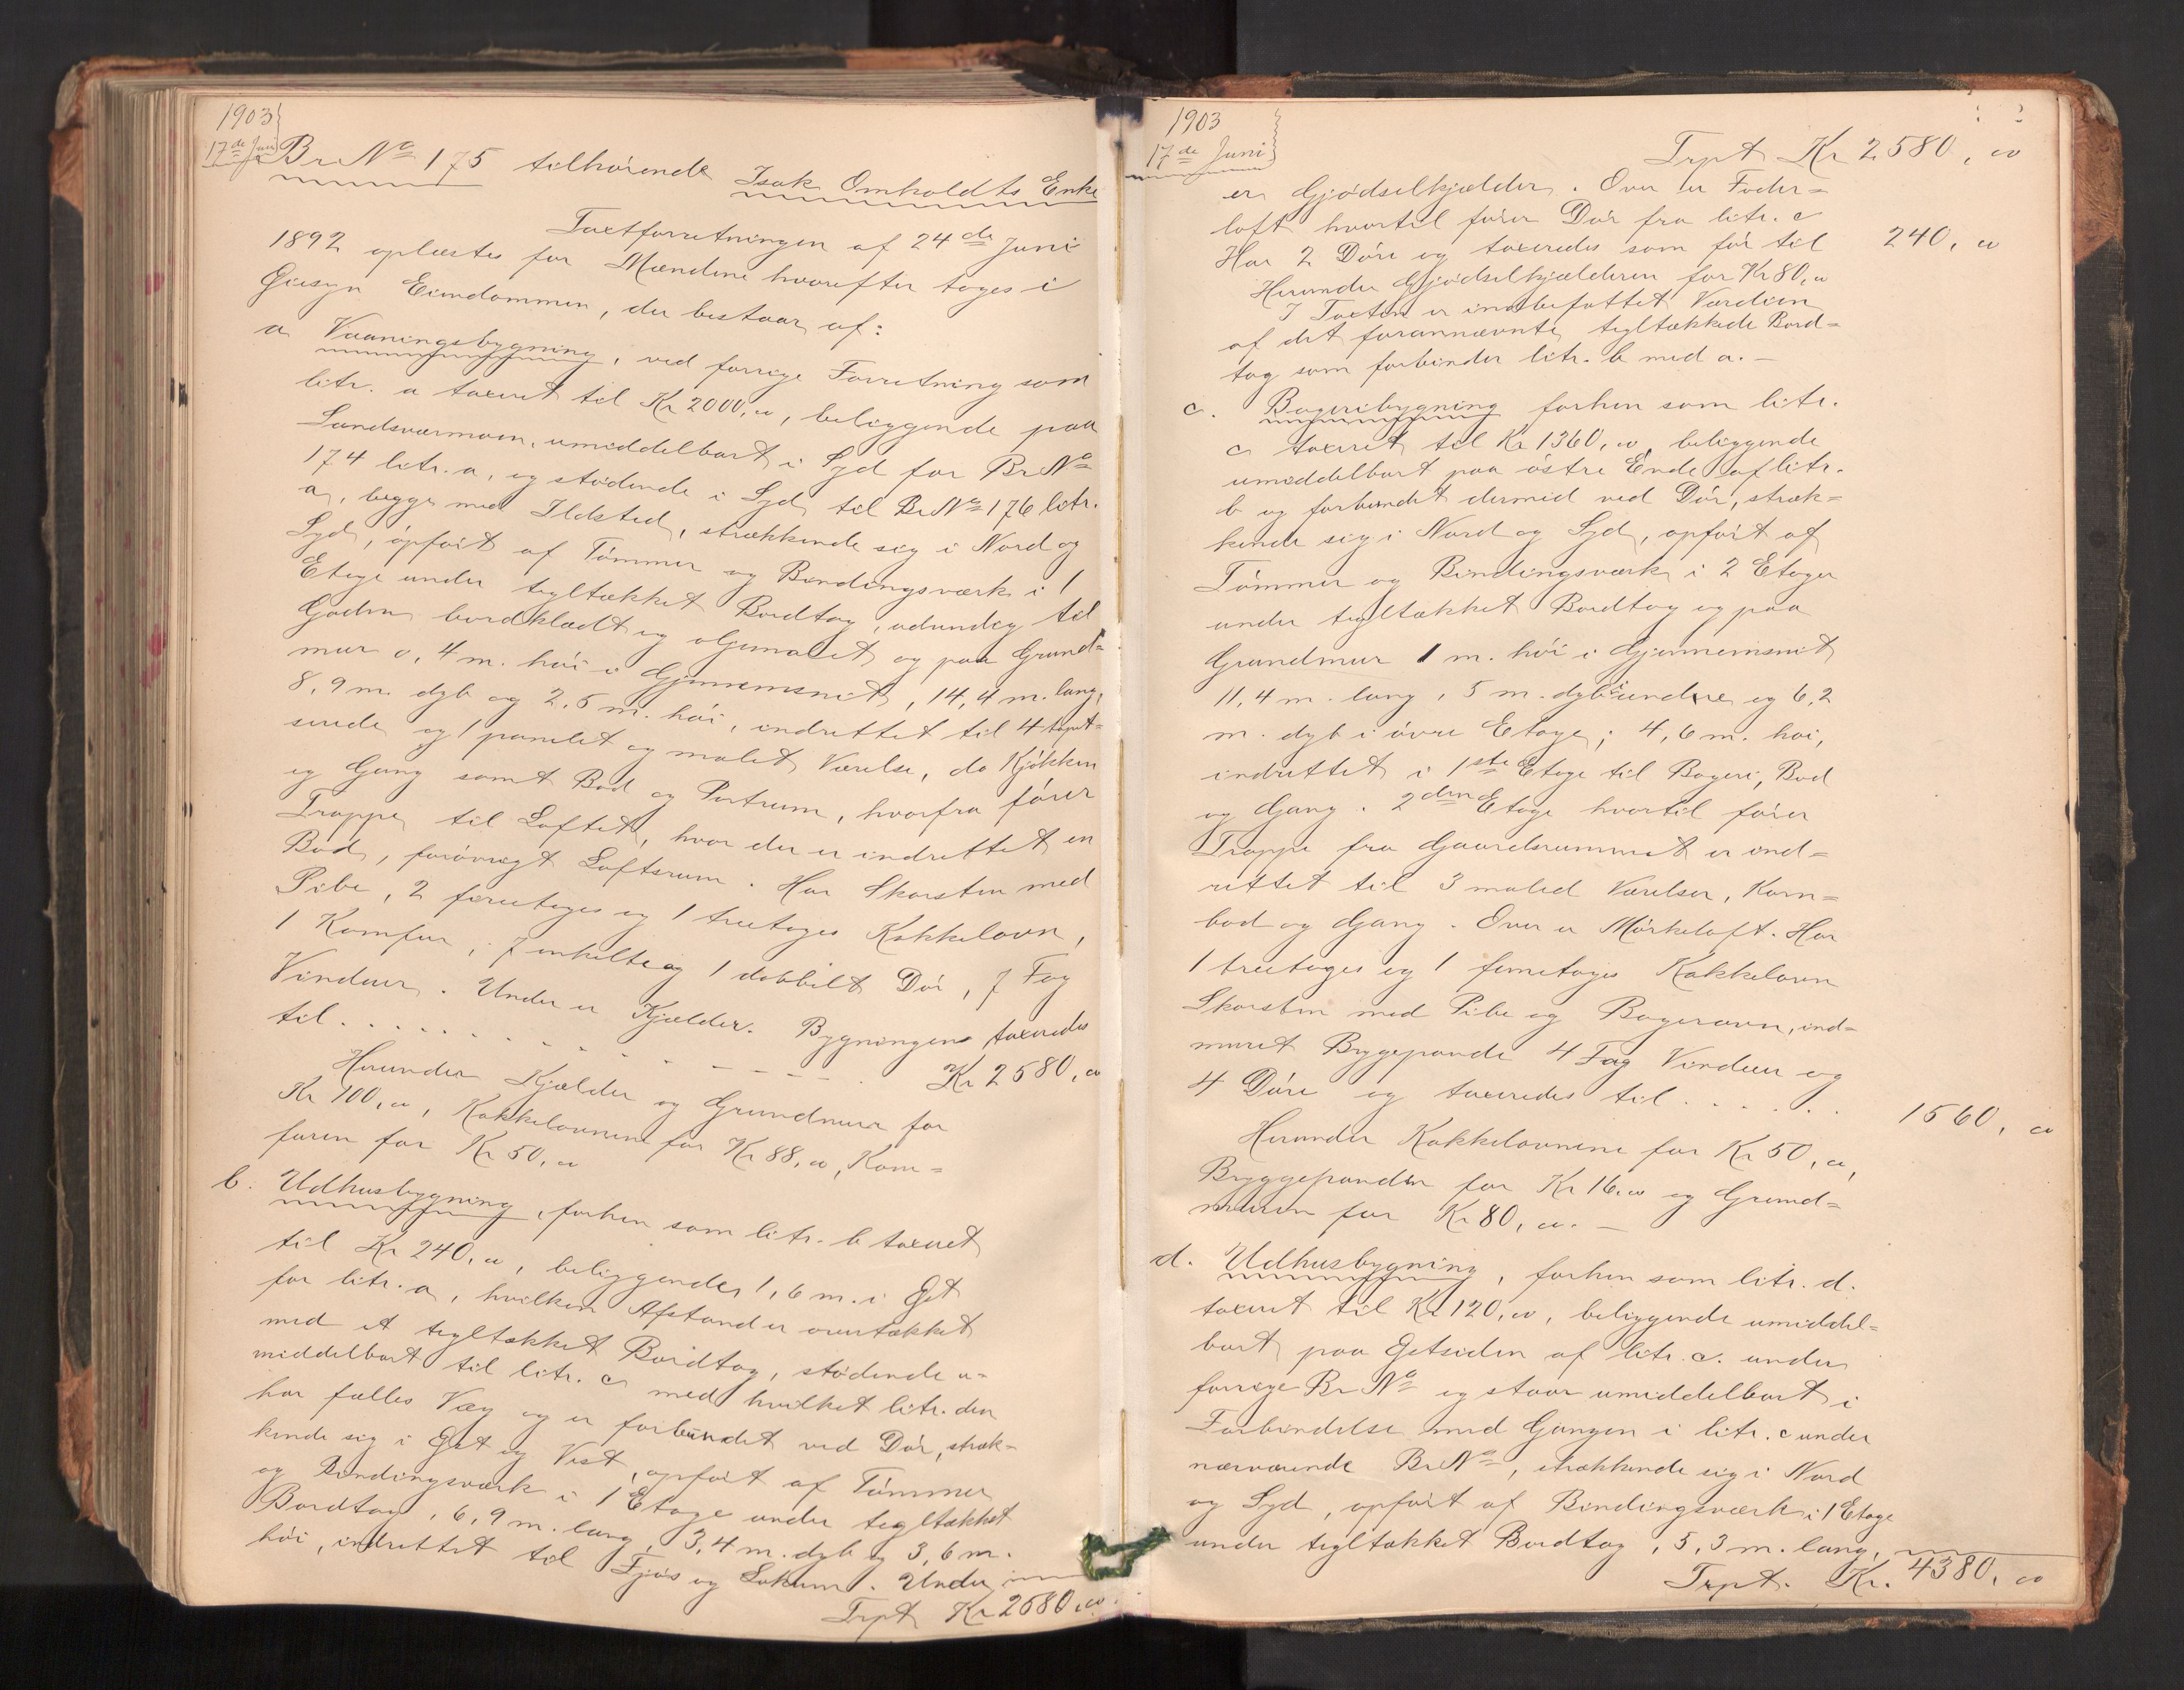 1903
17de Juni
Br No 175 tilhørende Isak Omholdts Enke
Taxtforretningen af 24de Juni
1892 oplæstes for Mændene hvorefter toges i
Øiesyn Eiendommen, der bestaar af:
a Vaaningsbygning, ved forrige Forretning som
litr. a taxeret til Kr 2000,00, beliggende paa
Sandsværmoen, umiddelbart i Syd for Br No
174 litr. a, og stødende i Syd til Br No 176 litr.
a, begge med Ildsted, strækkende sig i Nord og
Syd, opført af Tømmer og Bindingsværk i 1
Etage under tegltækket Bordtag, udvendig til
Gaden bordklædt og oljemalet og paa Grund=
mur 0,4 m. høi i Gjennemsnit, 14,4 m. lang,
8,9 m. dyb og 2,5 m. høi, indrettet til 4 tapet=
serede og 1 panelet og malet Værelse, do Kjøkken
og Gang samt Bod og Portrum, hvorfra fører
Trappe til Loftet, hvor der er indrettet en
Bod, forøvrigt Loftsrum. Har Skorsten med
Pibe, 2 fireetages og 1 treetages Kakkelovn,
1 Komfur, 7 enkelte og 1 dobbelt Dør, 7 Fag
Vinduer. Under er Kjælder. Bygningen taxeredes
til . . . . . . . . . . . . Kr 2580,00
Herunder Kjælder og Grundmur for
Kr 100,00, Kakkelovnene for Kr 88,00, Kom=
furen for Kr 50,00
b. Udhusbygning, forhen som litr. b taxeret
til Kr 240,00, beliggende 1,6 m. i Øst
for litr. a, hvilken Afstand er overtækket
med et tegltækket Bordtag, stødende u=
middelbart til litr. c med hvilket litr. den
har fælles Væg og er forbundet ved Dør, stræk=
kende sig i Øst og Vest, opført af Tømmer
og Bindingsværk i 1 Etage under tegltækket
Bordtag, 6,9 m. lang, 3,4 m. dyb og 3,6 m.
høi, indrettet til Fjøs og Lokum. Under
Trpt Kr 2580,00
1903
17de Juni
Trpt Kr 2580,00
er Gjødselkjælder. Over er Foder=
loft hvortil fører Dør fra litr. c
Har 2 Døre og taxeredes som før til 240,00
Herunder Gjødselkjælderen for Kr 80,00
I Taxten er indbefattet Værdien
af det forannævnte tegltækkede Bord=
tag som forbinder litr. b med a. —
c. Bageribygning forhen som litr.
c taxeret til Kr 1360,00, beliggende
umiddelbart paa østre Ende af litr.
b og forbundet dermed ved Dør, stræk=
kende sig i Nord og Syd, opført af
Tømmer og Bindingsværk i 2 Etager
under tegltækket Bordtag og paa
Grundmur 1 m. høi i Gjennemsnit
11,4 m. lang, 5 m. dyb i undre og 6,2
m. dyb i øvre Etage; 4,6 m. høi,
indrettet i 1ste Etage til Bageri, Bod
og Gang. 2den Etage hvortil fører
Trappe fra Gaardsrummet er ind=
rettet til 3 maled Værelser, Korn=
bod og Gang. Over er Mørkeloft. Har
1 treetages og 1 femetages Kakkelovn
Skorsten med Pibe og Bagerovn, ind=
muret Bryggepande 4 Fag Vinduer og
4 Døre og taxeredes til . . . . . . 1560,00
Herunder Kakkelovnene for Kr 50,00,
Bryggepanden for Kr 16.00 og Grund=
muren for Kr 80,00. —
d. Udhusbygning, forhen som litr. d.
taxeret til Kr 120,00, beliggende umiddel=
bart paa Østsiden af litr. c. under
forrige Br No og staar umiddelbart i
Forbindelse med Gangen i litr. c under
nærværende Br No, strækkende sig i Nord
og Syd, opført af Bindingsværk i 1 Etage
under tegltækket Bordtag, 5,3 m. lang,
Trpt. Kr. 4380,00